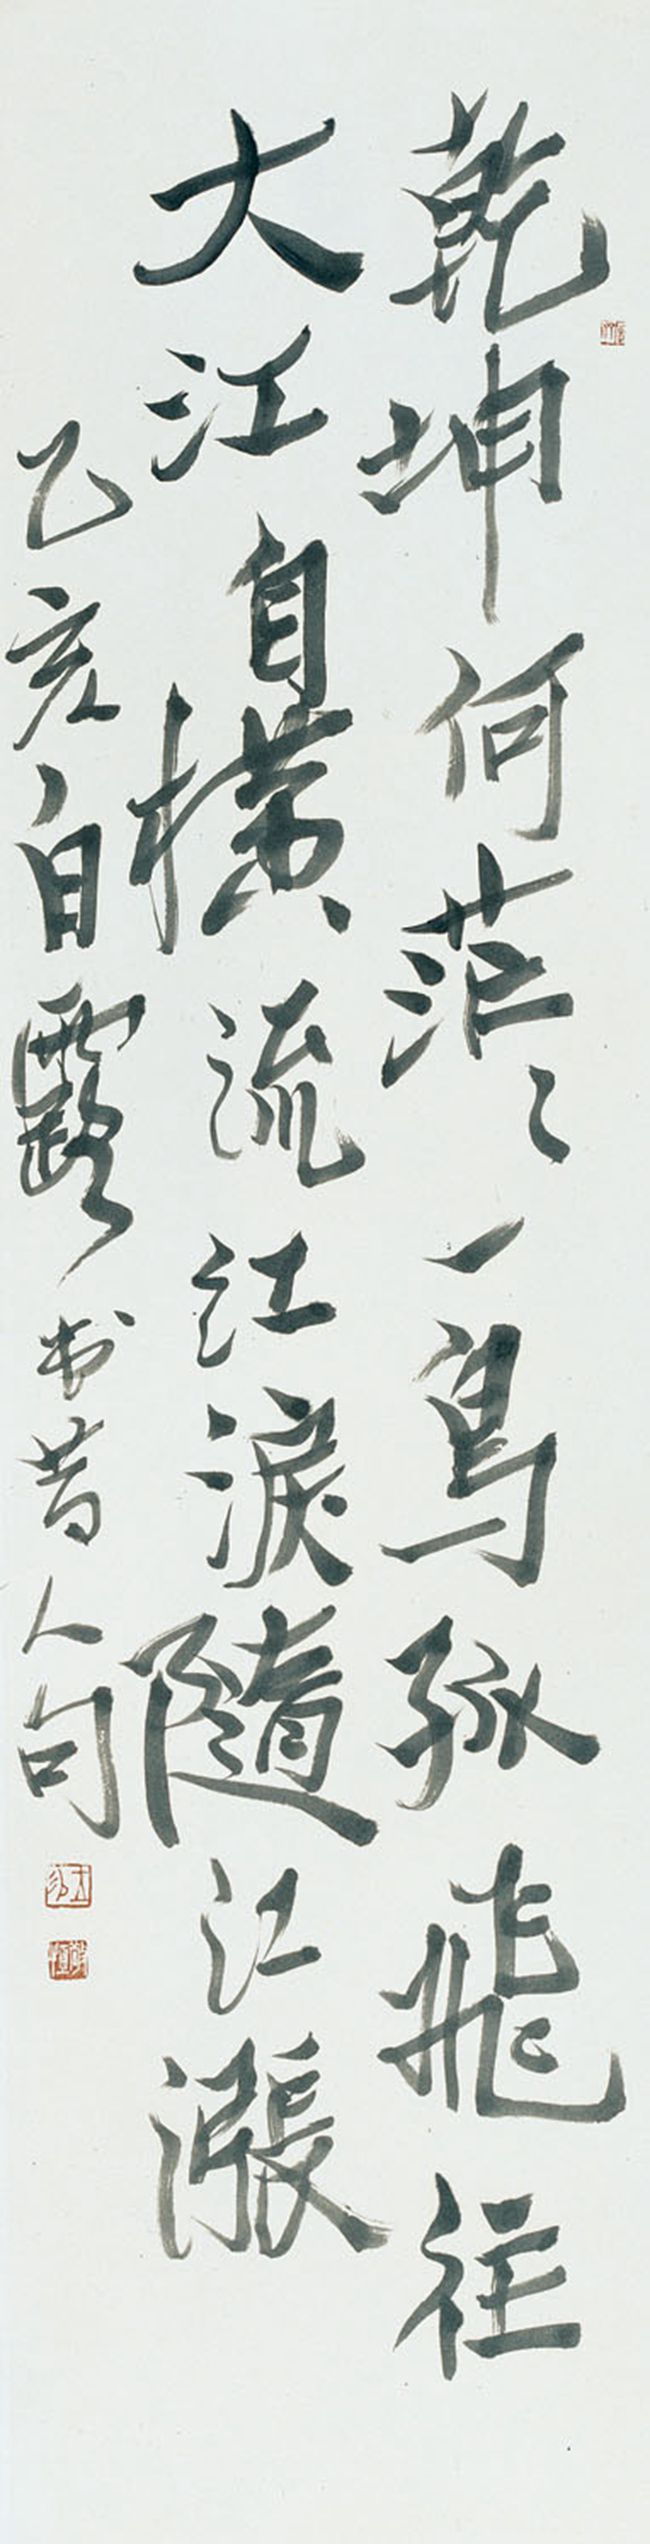 乾坤何茫々一鳥孤飛往
大江自橫流江淚隨江漲
乙亥白露書昔人句